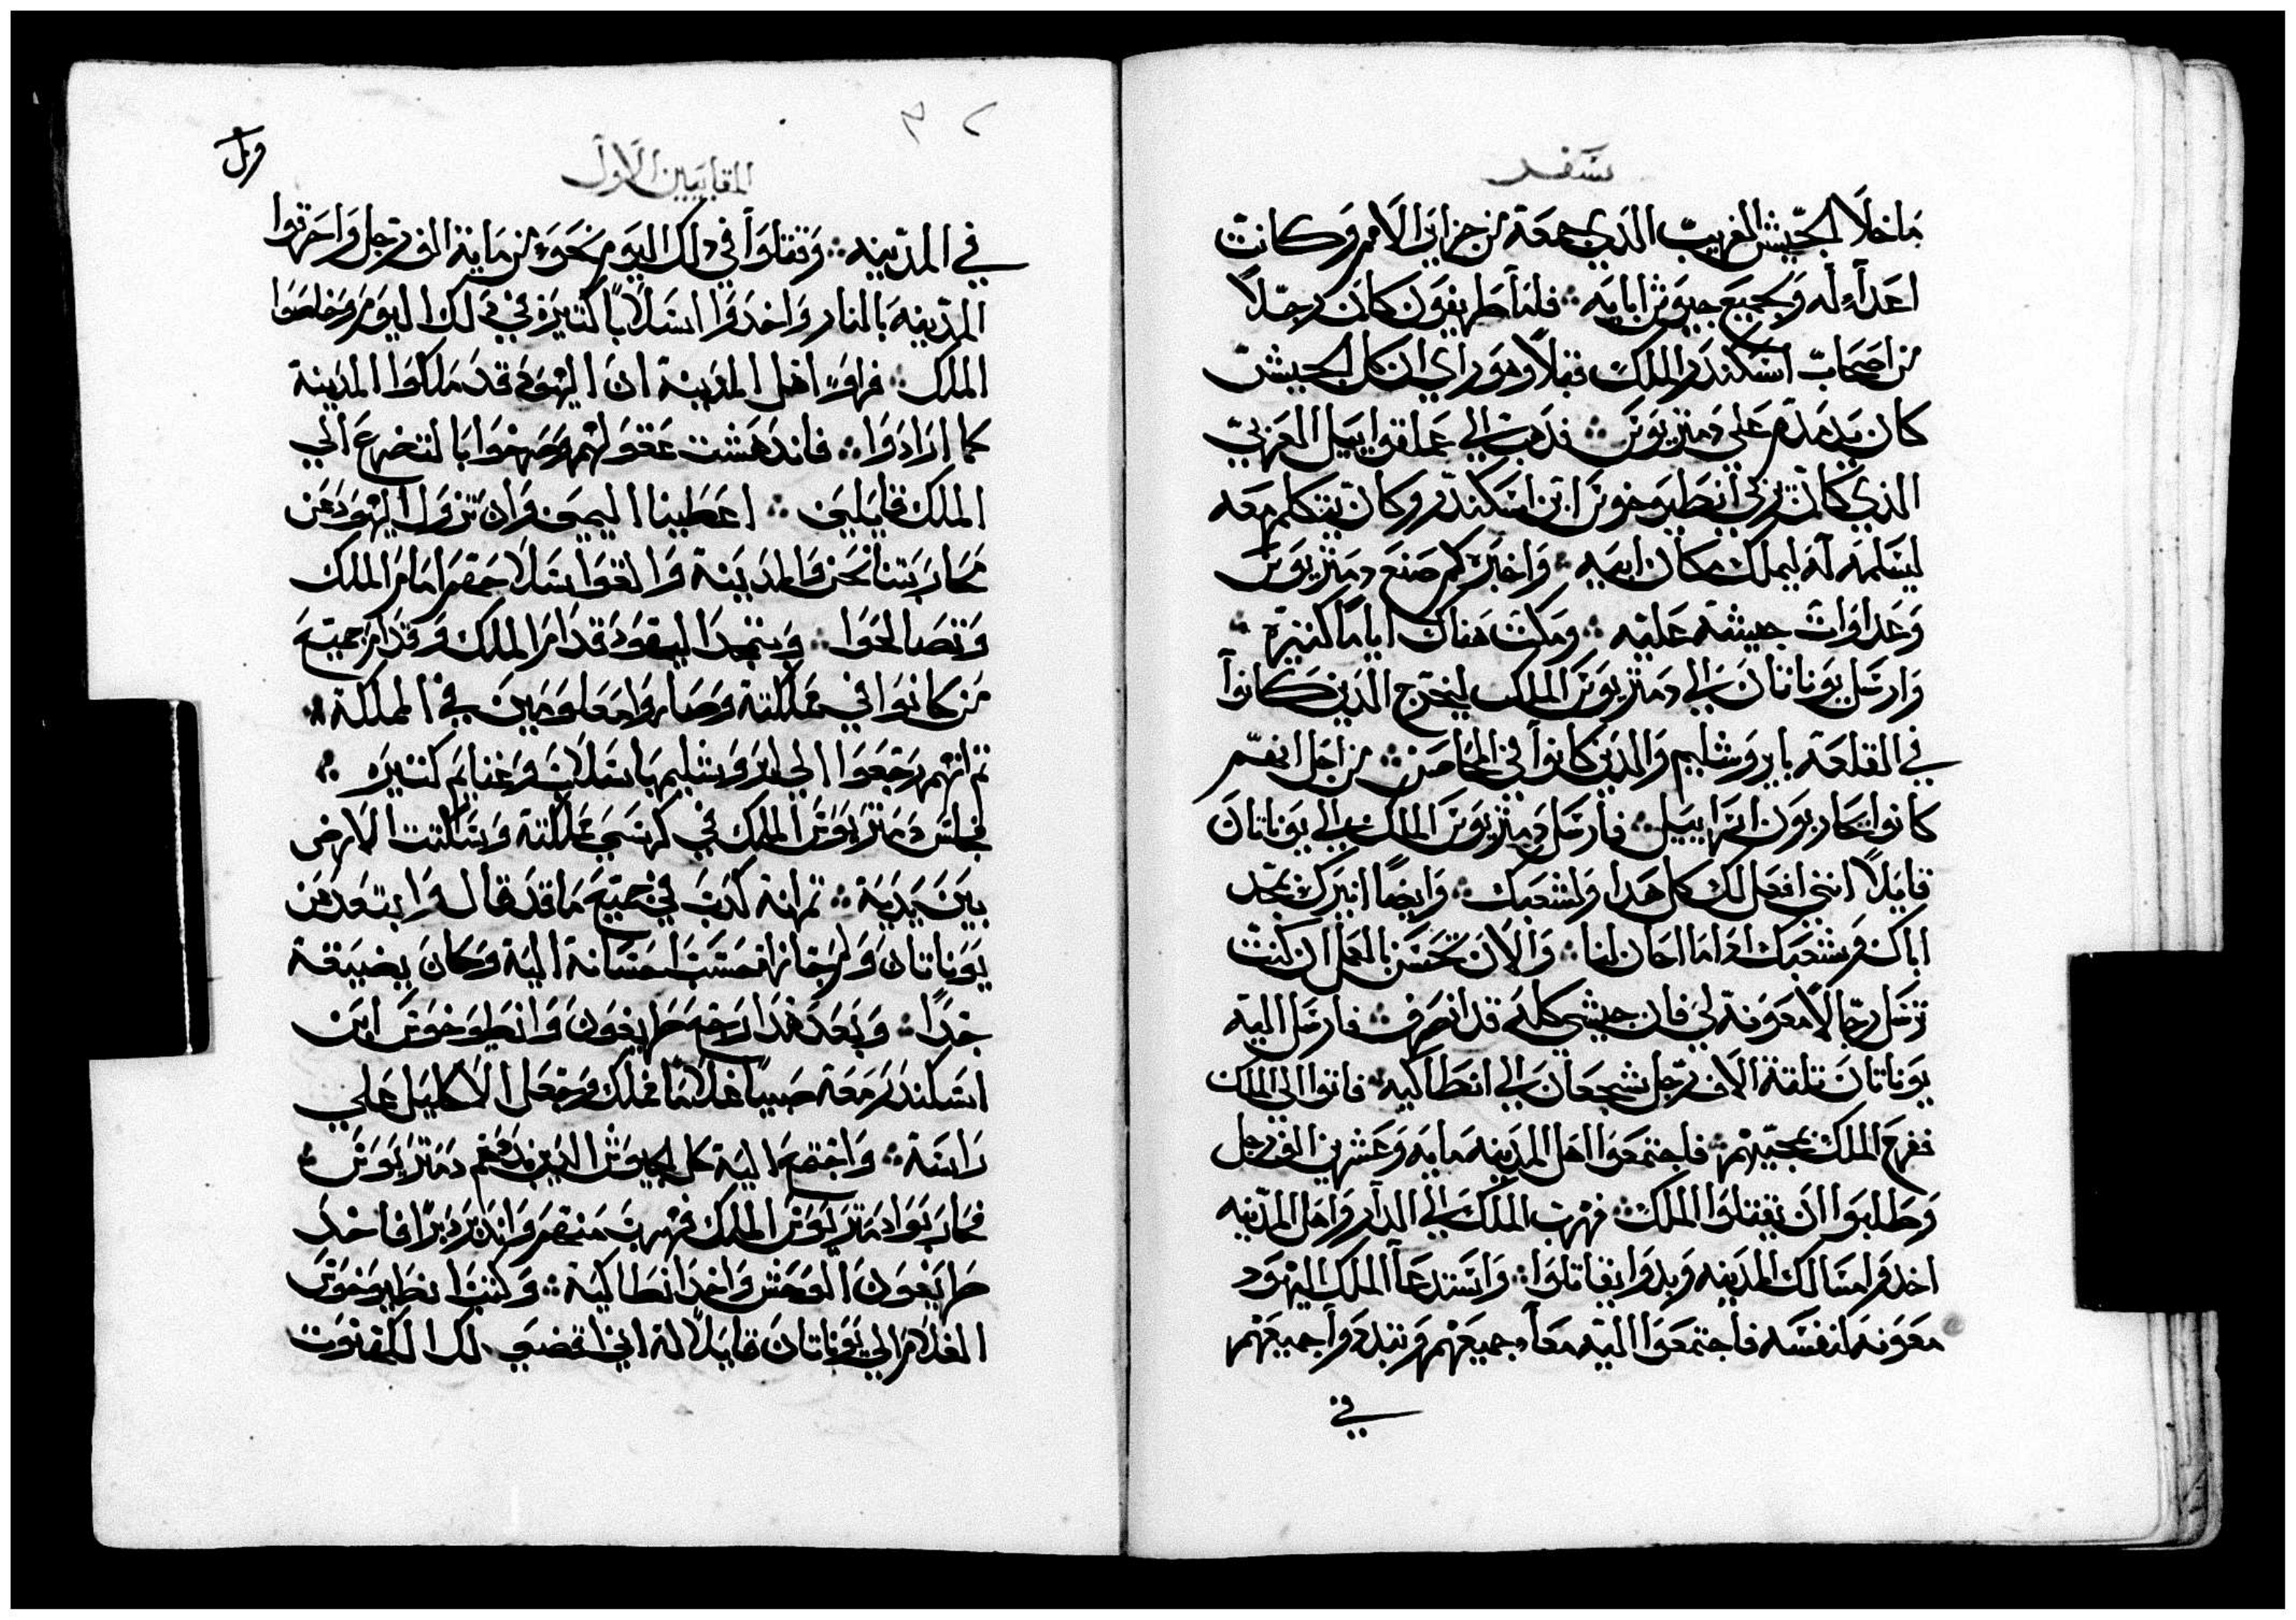 سفر
ما خلا الجيش الغريب الذي جمعة من جزاير الامم وكانت
اعداء له وجميع جيوش ابايه ∴ فلما طريفون كان رجلاً
من اصحاب اسكندر الملك قبلاً وهو راي ان كل الجيش
كان يدمدم علي دمتريوس ∴ فذهب الي عملقواييل العربي
الذي كان يربي انطيوخوس ابن اسكندر وكان يتكلم معه
ليسلمه له ليملك مكان ابيه ∴ واخبره كم صنع دمتريوس
وعداوات جيشه عليه ∴ ومكث هناك اياماً كثيرة ∴
وارسل يوناتان الي دمتريوس الملك ليخرج الذين كانوا
في القلعة بايروشليم والذين كانوا في المحاصن ∴ من اجل انهم
كانوا يحاربون اسراييل ∴ فارسل دمتريوس الملك الي يوناتان
قايلاً انني افعل لك كل هذا ولشعبك ∴ وايضاً انيرك بمجد
اياك وشعبك اذا ما احان لنا ∴ والان تحسن بالعمل ان كنت
ترسل رجالاً معونة لي فان جيشي كله قد انصرف ∴ فارسل اليه
يوناتان ثلثة الاف رجل شجعان الي انطاكيه ∴ فاتوا الي الملك
ففرح الملك بمجيتهم ∴ فاجتمعوا اهل المدينه مايه وعشرين الف رجل
وطلبوا ان يقتلوا الملك ∴ فهرب الملك الي الدار واهل المدينه
اخذوا مسالك المدينه وبدوا يقاتلوا ∴ واستدعا الملك اليهود
معونه لنفسه فاجتمعوا اليه معاً جميعهم وتبددوا جميعهم
في
٣٢
المقابيين الاول
في المدينه ∴ وقتلوا في ذلك اليوم نحو من ماية الف رجل واحرقوا
المدينه بالنار واخذوا اسلاباً كثيرة في ذلك اليوم وخلصوا
الملك ∴ فراوا اهل المدينة ان اليهود قد ملكوا المدينة
كما ارادوا ∴ فاندهشت عقولهم وصرخوا بالتضرع الي
الملك قايلين ∴ اعطينا اليمين وان تزول اليهود عن
محاربتنا نحن والمدينة والقوا سلاحهم امام الملك
وتصالحوا ∴ وتمجدا اليهود قدام الملك وقدام جميع
من كانوا في مملكتة وصاروا معلومين في المملكة ∴
ثم انهم رجعوا الي ايروشليم باسلاب وغنايم كثيرة ∴
فجلس دمتريوس الملك في كرسي مملكتة وسكتت الارض
بين يدية ∴ ثم انه كذب في جميع ما قد قال وابتعد من
يوناتان ولم يجازه حسب احسانة الية وكان يضيقة
جداً ∴ وبعد هذا رجع طريفون وانطيوخوس ابن
اسكندر معة صبياً غلاماً فملك وجعل الاكليل علي
راسة ∴ واجتمع الية كل الجيوش الذين بددهم دمتريوس ∴
فحاربوا دمتريوس الملك فهرب منهم واندبر دبراً فاخذ
طريفون الوحش واخذ انطاكية ∴ وكتب انطيوخوس
الغلام الي يوناتان قايلاً له اني اقضي لك الكهنوت